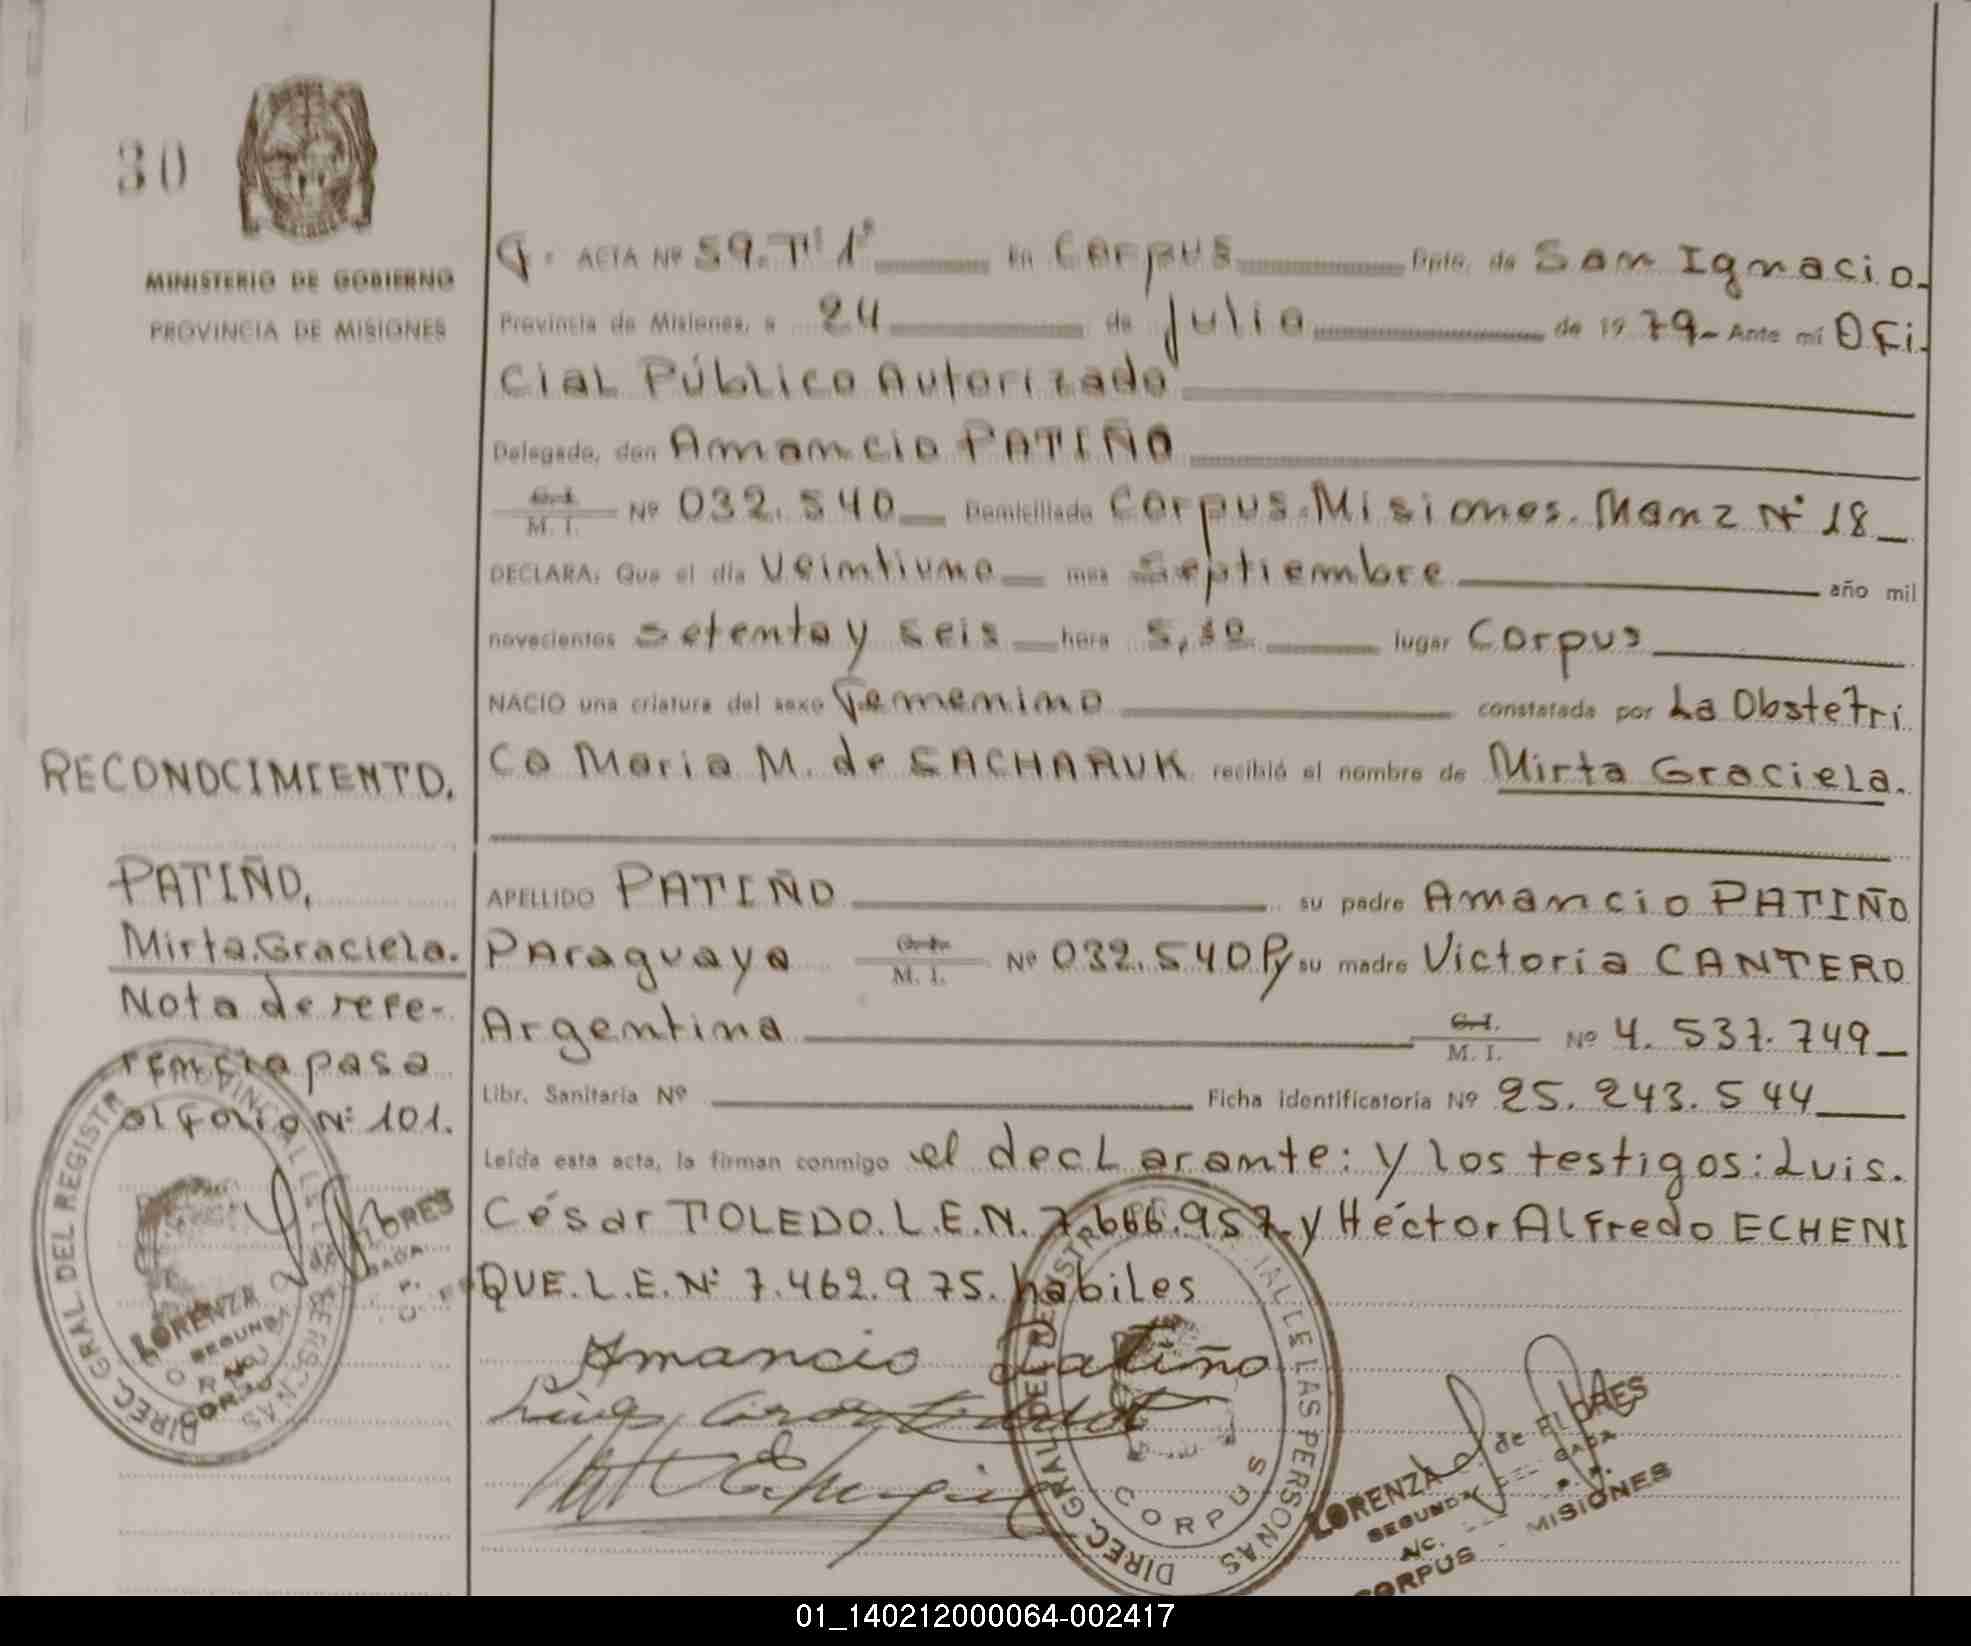 30
MINISTERIO DE GOBIERNO
PROVINCIA DE MISIONES
ACTA Nº 59. Tº 1º En Corpus Dpto. de San Ignacio.
Provincia de Misiones, a 24 de Julio de 1979- Ante mí OFi.
cial Público Autorizado
Delegado, don Amancio PATIÑO
C.I. M. I. Nº 032.540 Domiciliado Corpus.Misiones.Manz Nº 18
DECLARA: Que el día Veintiuno mes Septiembre año mil
novecientos setenta y seis hora lugar Corpus
NACIO una criatura del sexo Femenino constatada por La Obstetri
ca Maria M. de SACHARUK recibió el nombre de Mirta Graciela.
RECONOCIMIENTO.
PATIÑO,
Mirta.Graciela.
Nota de refe-
rencia pasa
al Folio Nº 101.
APELLIDO PATIÑO su padre Amancio PATIÑO
PAraguaya C.I. M. I. Nº 032.540 Py su madre Victoria CANTERO
Argentina C.I. M. I. Nº 4. 537.749
Libr. Sanitaria Nº Ficha identificatoria Nº 25.243.544
Leída esta acta, la firman conmigo el decLarante: y los testigos: Luis.
César TOLEDO.L.E.N. 7.666.957.y Héctor ALFredo ECHENI
QUE.L.E.Nº 7.462.975. habiles
Amancio Patiño
DIREC. GRAL. DEL REGISTR PROVINCIAL DE LAS PERSONAS
CORPUS
LORENZA de FLORES
SEGUNDA
CORPUS
DIREC. GRAL. DEL REGISTR DE LAS PERSONAS
CORPUS
LORENZA de FLORES
SEGUNDA
CORPUS - MISIONES
01_140212000064-002417